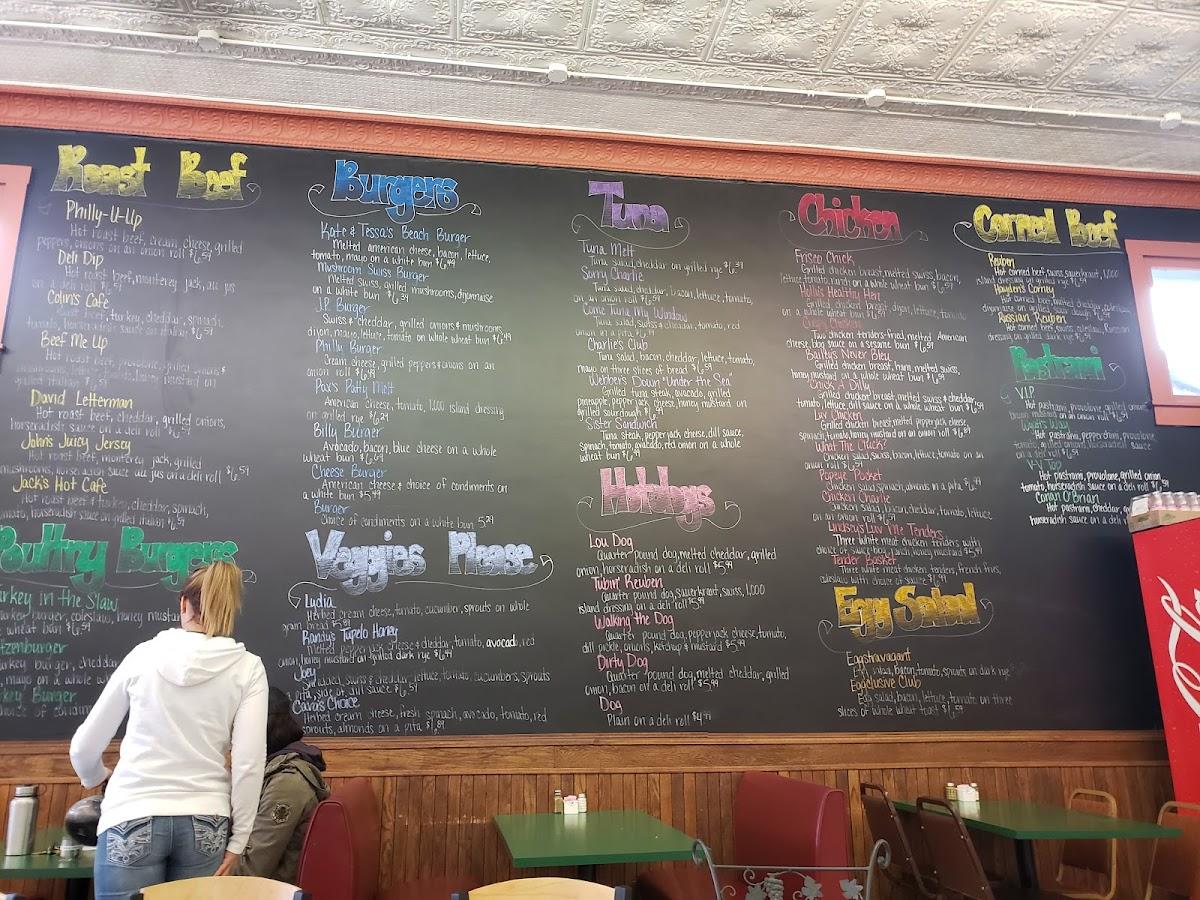 Roast Beef
Philly-U-Up
Hot roast beef, cream cheese, grilled
peppers, onions on an onion roll $6.59
Deli Dip
Hot roast beef, monterey jack, au jus
on a deli roll $6.59
Colin's Cafe
roast beef, turkey, cheddar, spinach,
tomato, horseradish sauce on italian $6.59
Beef Me Up
Hot roast beef, provolone, grilled onions &
David Letterman
Hot roast beef, cheddar, grilled onions,
horseradish sauce on a deli roll
John's Juicy Jersey
Hot roast beef, monterey jack, grilled
mushrooms, horseradish sauce au jus on a deli roll $6.59
Jack's Hot Cafe
Hot roast beef & turkey, cheddar, spinach,
tomato, horseradish sauce on grilled italian $6.59
Poultry Burgers
rkey in the Slaw
turkey burger, coleslaw, honey mustar
wheat bun $6.59
tzenburger
turkey burger, cheddar
mayo on a whole wh
rkey Burger
choice of condim
Burgers
Kate & Tessa's Beach Burger
Melted american cheese, bacon, lettuce,
tomato, mayo on a white bun $6.49
Mushroom Swiss Burger
Melted swiss, grilled mushrooms, dijonnaise
on a white bun $6.39
J.P. Burger
Swiss & cheddar, grilled onions & mushrooms,
dijon, mayo, lettuce, tomato on whole wheat bun $6.49
Philly Burger
Cream cheese, grilled peppers & onions on an
onion roll $6.49
Pax's Patty Melt
American cheese, tomato, 1,000 island dressing
on grilled rye $6.29
Billy Burger
Avocado, bacon, blue cheese on a whole
wheat bun $6.69
Cheese Burger
American cheese & choice of condiments on
a white bun $5.49
Burger
Choice of condiments on a white bun 5.29
Veggies Please
Lydia
Herbed cream cheese, tomato, cucumber, sprouts on whole
grain bread $5.99
Randy's Tupelo Honey
Melted pepper jack cheese & cheddar, tomato, avocado, red
onion, honey mustard on grilled dark rye $6.59
Joey
cheddar, swiss & cheddar, lettuce, tomato, cucumbers, sprouts
pita, side of dill sauce $6.59
Cara's Choice
Herbed cream cheese, fresh spinach, avocado, tomato, red
sprouts, almonds on a pita $6.89
Tuna
Tuna Melt
Tuna salad, cheddar on grilled rye $6.39
Sorry Charlie
Tuna salad, cheddar, bacon, lettuce, tomato,
on an onion roll $6.59
Come Tuna My Window
Tuna salad, swiss & cheddar, tomato, red
onion in a pita $6.59
Charlie's Club
Tuna salad, bacon, cheddar, lettuce, tomato,
mayo on three slices of bread $6.59
Webber's Down "Under the Sea"
Grilled tuna steak, avocado, grilled
pineapple, pepper jack cheese, honey mustard on
grilled sourdough
Sister Sandwich
Tuna steak, pepper jack cheese, dill sauce,
spinach, tomato, avocado, red onion on a whole
wheat bun
Hotdogs
Lou Dog
Quarter pound dog, melted cheddar, grilled
onion, horseradish on a deli roll $5.99
Tubin' Reuben
Quarter pound dog, sauerkraut, swiss, 1,000
island dressing on a deli roll $5.99
Walking the Dog
Quarter pound dog, pepperjack cheese, tomato,
dill pickle, onions, ketchup & mustard $5.99
Dirty Dog
Quarter pound dog, melted cheddar, grilled
onion, bacon on a deli roll $5.99
Dog
Plain on a deli roll $4.99
Chicken
Frisco Chick
Grilled chicken breast, melted swiss, bacon,
lettuce, tomato, ranch on a whole wheat bun $6.59
Holly's Healthy Hen
Grilled chicken breast, dijon, lettuce, tomato
on a whole wheat bun
Two chicken tenders-fried, melted American
cheese, bbq sauce on a sesame bun
Bailey's Never Bleu
Grilled chicken breast, ham, melted swiss,
honey mustard on a whole wheat bun $6.59
Chick A Dilly
Grilled chicken breast, melted swiss & cheddar,
tomato, lettuce, dill sauce on a whole wheat bun
Luv Chicken
Grilled chicken breast, melted pepperjack cheese
spinach, tomato, honey mustard on an onion roll
What The Cluck?
Chicken salad, swiss, bacon, lettuce, tomato on an
onion roll $6.59
Popeye Pocket
Chicken salad, spinach, almonds in a pita $6.49
Chicken Charlie
Chicken salad, bacon, cheddar, tomato, lettuce
on an onion roll $6.59
Lindsey's Luv Me Tenders
Three white meat chicken tenders with
choice of sauce-bbq, ranch, honey mustard $5.99
Tender Basket
Three white meat chicken tenders, french fries,
coleslaw with choice of sauce
Egg Salad
Eggstravagant
Egg salad, bacon, tomato, sprouts on dark rye
Eggclusive Club
Egg salad, bacon, lettuce, tomato on three
slices of whole wheat toast $6.59
Corned Beef
Reuben
Hot corned beef, swiss, sauerkraut, 1,000
island dressing on grilled rye
Hayden's Corney
Hot corned beef, melted cheddar, coleslaw,
Russian Reuben
Hot corned beef, swiss, coleslaw, Russian
dressing on grilled dark rye $6.59
Pastrami
V.I.P
Hot pastrami, provolone, grilled onion,
mustard on an onion roll
Wyatt's Way
Hot pastrami, pepperchini, provolone,
tomato, grilled onions, horseradish sauce
on a deli roll
V-V Top
Hot pastrami, provolone, grilled onion
tomato, horseradish sauce on a deli roll $6.59
Conan O'Brian
Hot pastrami, cheddar, grilled
horseradish sauce on a deli